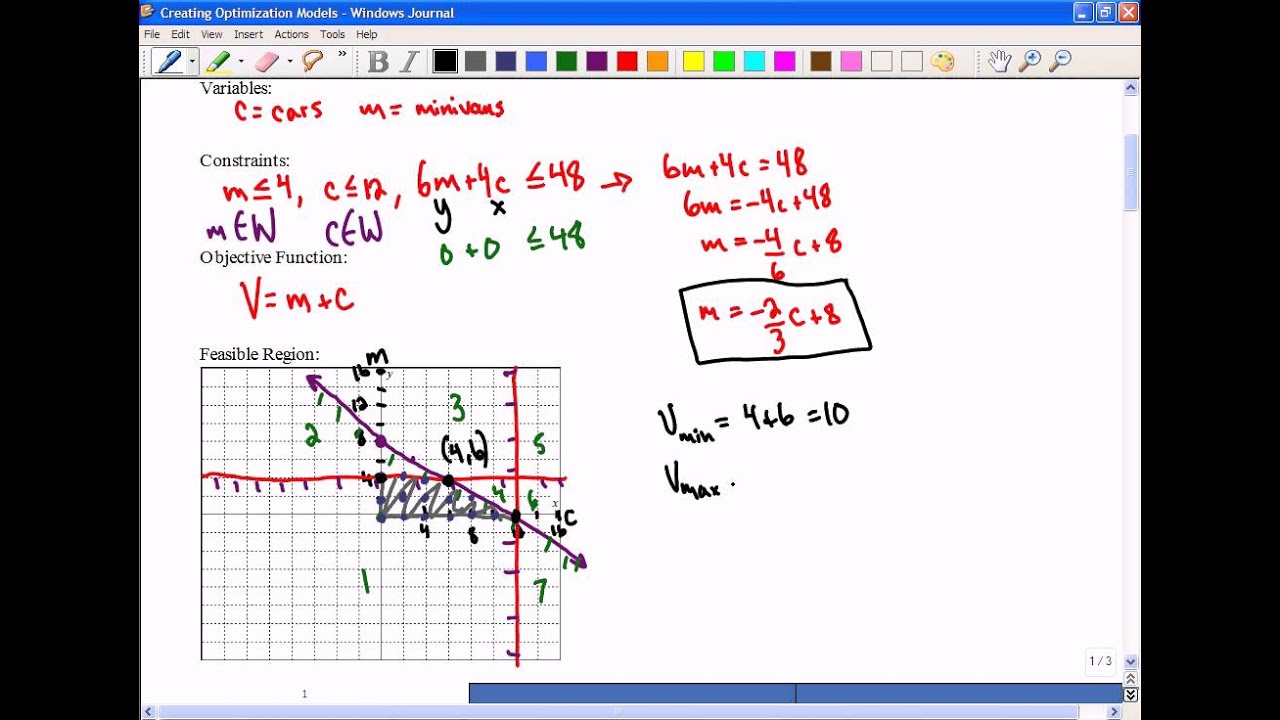 Creating Optimization Models - Windows Journal
File Edit View Insert Actions Tools Help
Variables:
c = cars m = minivans
Constraints:
m ≤ 4, c ≤ 12, 6m+4c ≤ 48 →
y x
m ∈ W c ∈ W
0 + 0 ≤ 48
6m+4c = 48
6m = -4c+48
m = -4/6 c + 8
m = -2/3 c + 8
Objective Function:
V = m + c
Feasible Region:
m
16 y
12 3
2 8 (4,6) 5
4 4 6 x c
4 8 16
1 7
V min = 4+6 = 10
V max
1 / 3
1